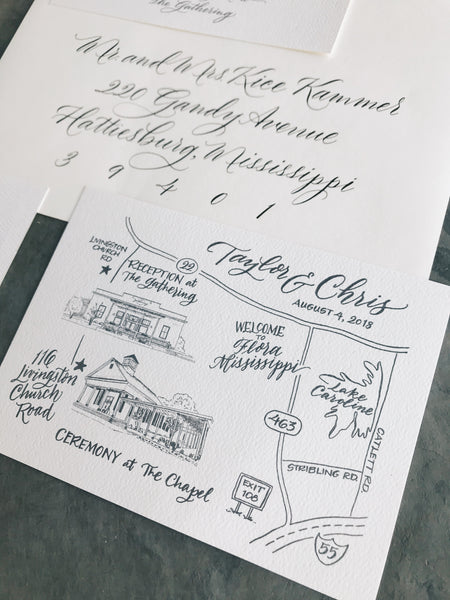 The Gathering
Mr. and Mrs Kice Kammer
220 Gandy Avenue
Hattiesburg, Mississippi
3 9 4 0 1
Taylor & Chris
AUGUST 4, 2018
LIVINGSTON
CHURCH
RD
22
RECEPTION at
The Gathering
WELCOME
TO
Flora
Mississippi
116
Livingston
Church
Road
Lake
Caroline
463
CATLETT RD.
STRIBLING RD.
CEREMONY at The Chapel
EXIT
108
55